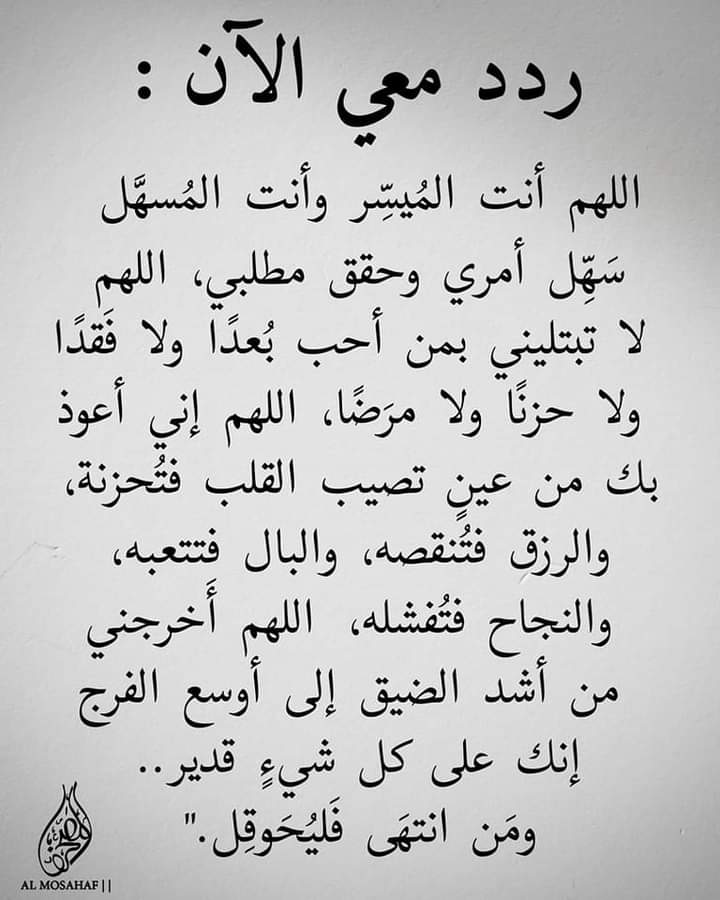 ردد معي الآن :
اللهم أنت المُيسِّر وأنت المُسهَّل
سَهِّل أمري وحقق مطلبي، اللهم
لا تبتليني بمن أحب بُعدًا ولا فَقدًا
ولا حزنًا ولا مرَضًا، اللهم إني أعوذ
بك من عينٍ تصيب القلب فتُحزنة،
والرزق فتُنقصه، والبال فتتعبه،
والنجاح فتُفشله، اللهم أَخرجني
من أشد الضيق إلى أوسع الفرج
إنك على كل شيءٍ قدير..
ومَن انتهَى فَليُحَوقِل."
AL MOSAHAF||